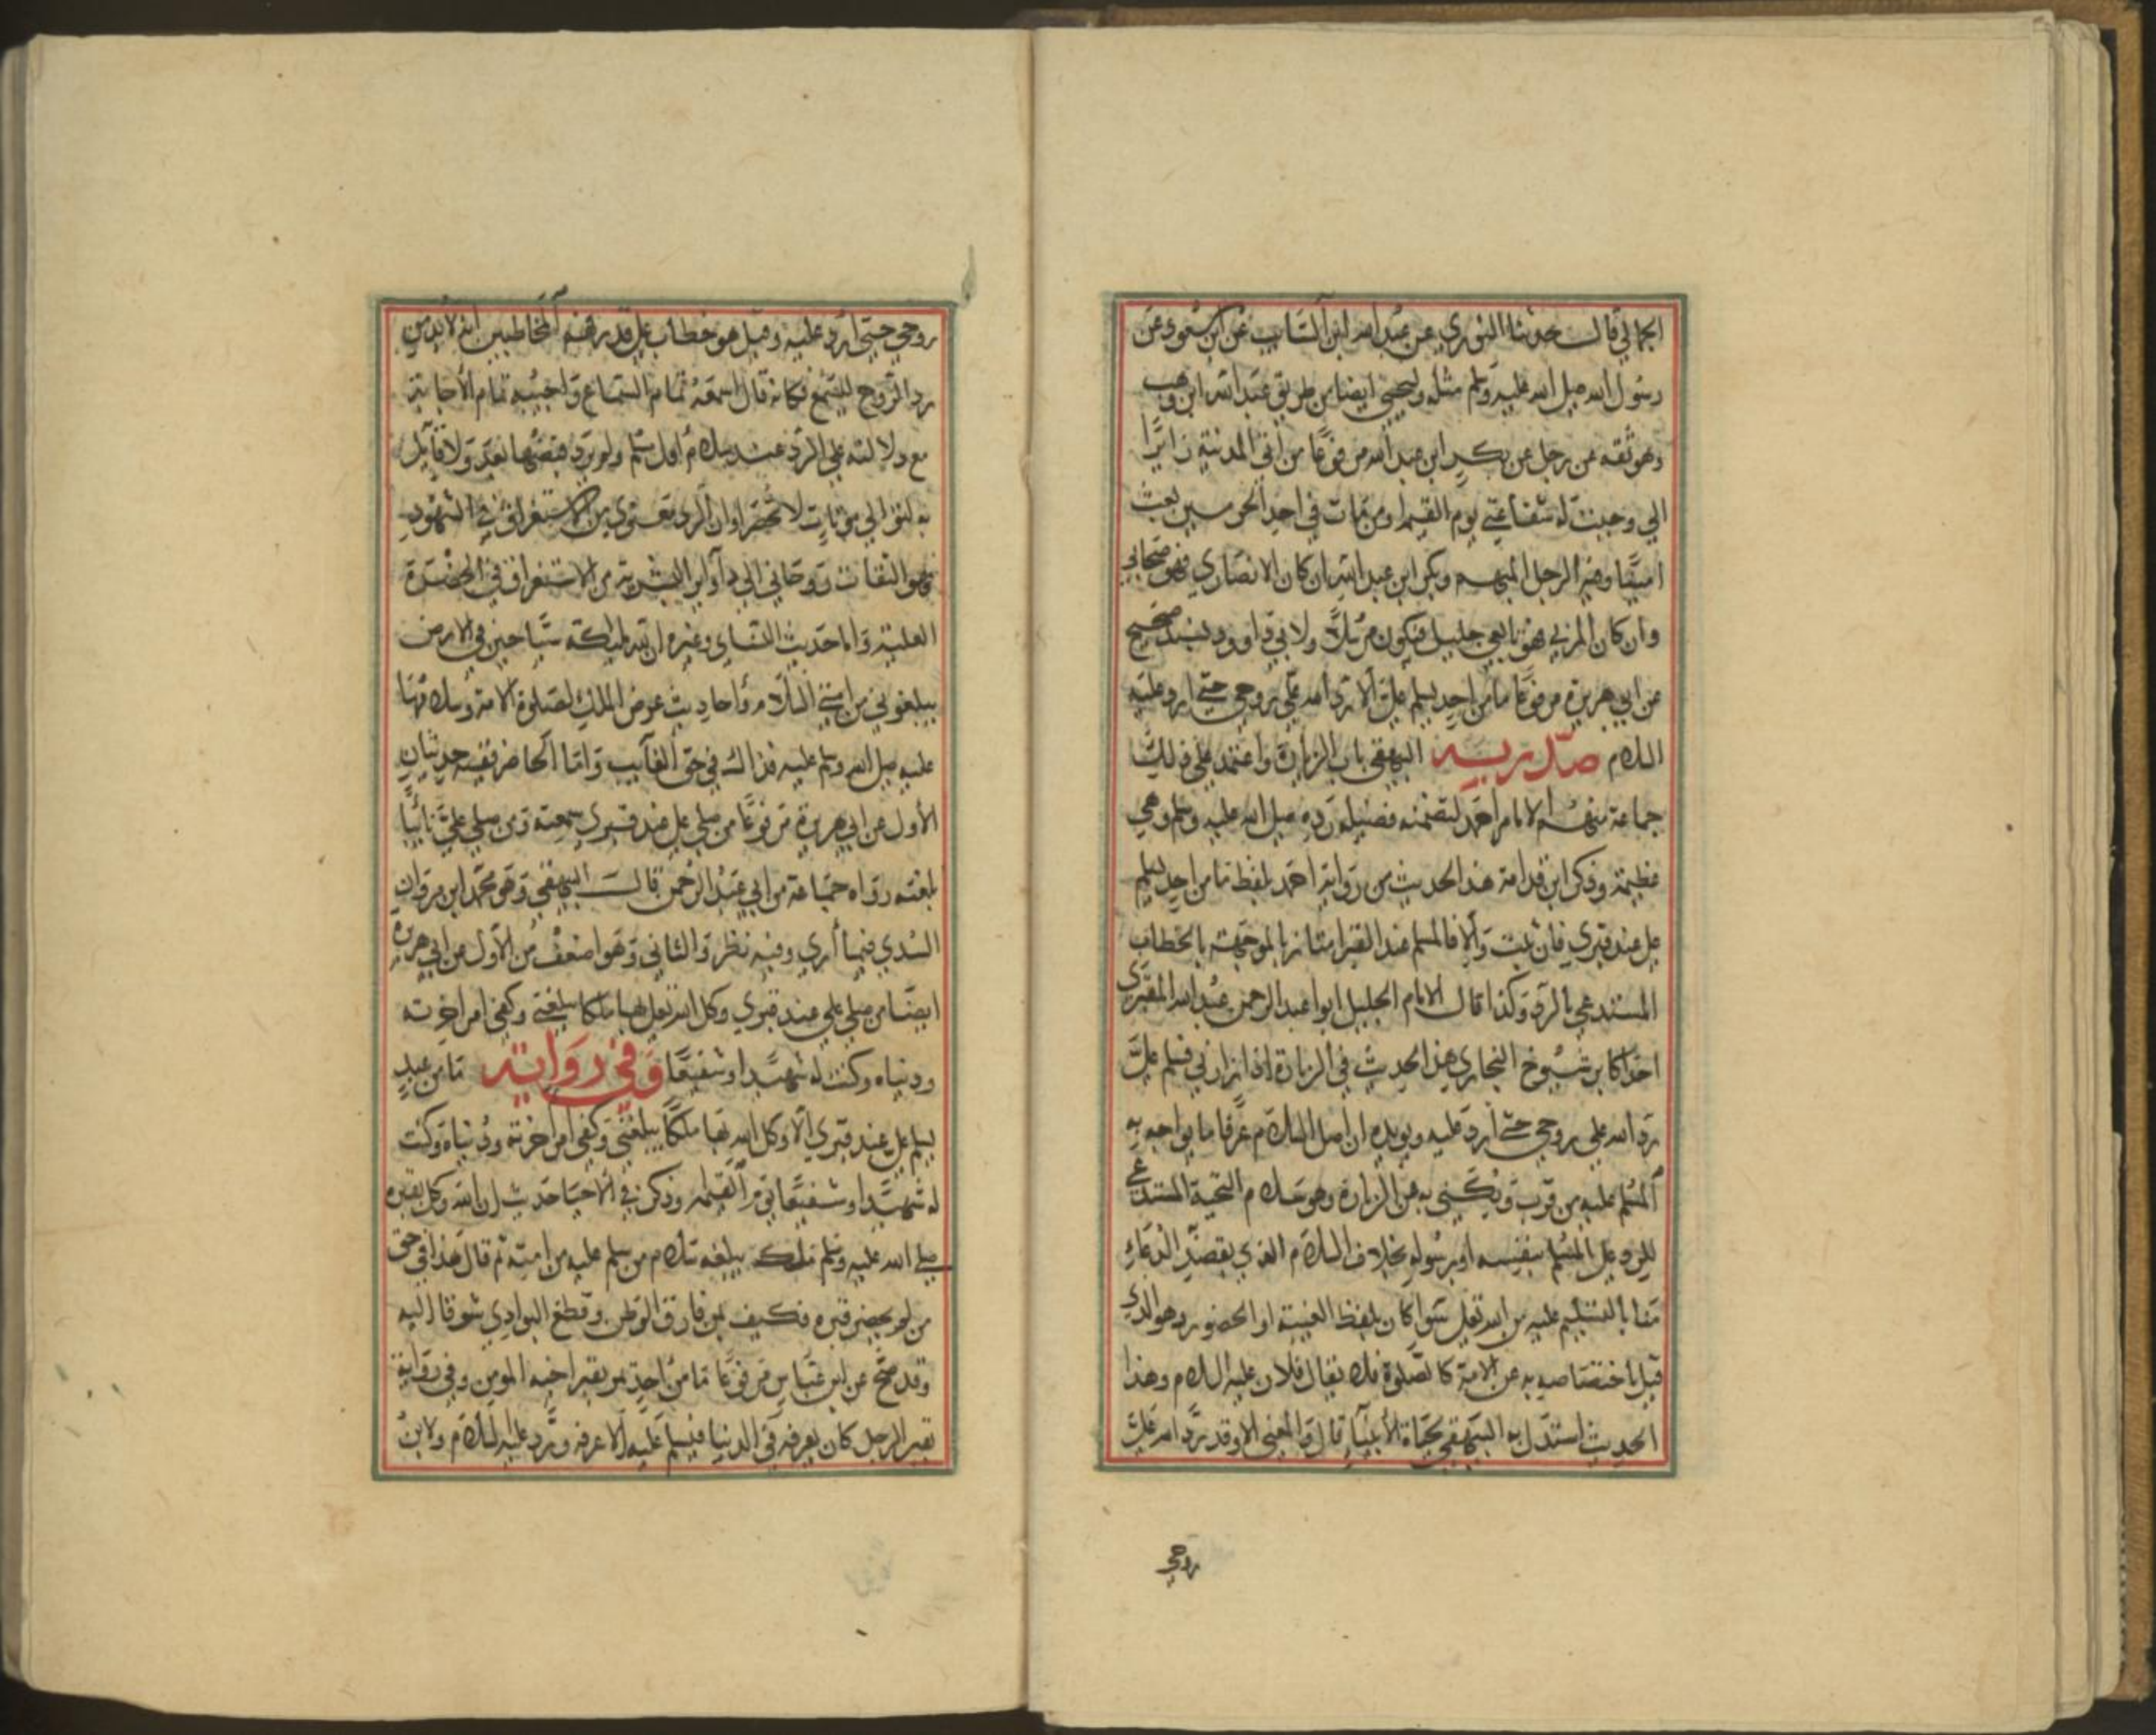 الجمالي قال حدثنا الثوري عن عبد الله ابن السايب عن ابن مسعود عن
رسول الله صلى الله عليه وسلم مثله وليحيى ايضا من طريق عبد الله ابن وهب
وهو ثقه عن رجل عن بكير ابن عبد الله مرفوعًا من اتى المدينة زايرًا
الي وجبت له شفاعتي يوم القيمة ومن مات في احد الحرمين بعث
امنًا وفيه الرجل المبهم وبكر ابن عبد الله ان كان الانصاري فهو صحابي
وان كان المزني فهو تابعي جليل فيكون مرسلًا ولابي داوود بسند صحيح
عن ابي هريرة مرفوعًا ما من احدٍ يسلم علي الا رد الله علي روحي حتى ارد عليه
السلام صدّر به البيهقي باب الزيارة واعتمد على ذلك
جماعة منهم الامام احمد لتضمنه فضيلة رده صلى الله عليه وسلم وهي
عظيمة وذكر ابن قدامة هذا الحديث من رواية احمد بلفظ ما من احدٍ يسلم
علي عند قبري فان ثبت والا فالمسلم عند القبر امتاز بالموجهة بالخطاب
المستدعي بالرد وكذا قال الامام الجليل ابو اعبد الرحمن عبد الله المقبري
احد اكابر شيوخ البخاري هذا الحديث في الزيارة اذا زارني فسلم علي
رد الله علي روحي حتى ارد عليه ويويده ان اصل السلام عرفًا ما يواجه به
المسلم عليه من قرب ويكنى به عن الزيارة وهو سلام التحية المستدعي
للرد على المسلم بنفسه او برسوله بخلاف السلام الذي بقصد الدعاء
منا بالتسليم عليه من الله تعلى سوا كان بلفظ الغيبة او الحضور وهو الذي
قيل باختصاصه به عن الامة كالصلوة فلا يقال فلان عليه السلام وهذا
الحديث استدل به البيهقي بحياة الأنبياء قال والمعنى الا وقد رد الله علي
روحي
روحي حتى ارد عليه وقيل هو خطاب على قدر فهم المخاطبين انه لابد من
رد الروح لليسمع فكانه قال اسمعه تمام السماع واجيبه تمام الأجابة
مع دلالته على الرد عند سلام اول مسلم ولم يرد قبضها بعد ولا قايل
به لتوالي موتات لا تحصر او ان الرد معنوي من الاستغراق في الشهود
فهو التفات روحاني الي دوائر البشرية من الاستغراق في الحضرة
العلية واما حديث النسايى وغيره ان لله مليكة سياحين في الارض
يبلغوني من امتي السلام واحاديث عرض الملك لصلوة الامة وسلامها
عليه صلى الله وسلم عليه فذالك في حق الغايب واما الحاضر ففيه حديثان
الأول عن ابي هريرة مرفوعًا من صلى علي عند قبري سمعته ومن صلى علي نائيًا
بلغته رواه جماعة من ابي عبد الرحمن قال البيهقي وهو محمد ابن مروان
السدي فيما أرى وفيه نظر والثاني وهو اضعف من الأول عن ابي هريرة
ايضًا من صلى علي عند قبري وكل الله تعلى بها ملكا يبلغني وكفي امر اخرته
ودنياه وكنت له شهيدًا او شفيعًا وفي رواية ما من عبدٍ
يسلم علي عند قبري الا وكل الله بها ملكًا يبلغني وكفي امر اخرته ودنياه وكنت
له شهيدًا او شفيعًا يوم القيمة وذكر في الأحيا حديث ان الله وكل بقبره
صلى الله عليه وسلم ملك يبلغه سلام من سلم عليه من امته ثم قال هذا في حق
من لم يحضر قبره فكيف بمن فارق الوطن وقطع البوادي شوقا اليه
وقد صح عن ابن عباس مرفوعًا ما من احدٍ يمر بقبر اخيه المومن وفي رواية
بقبر الرجل كان يعرفه في الدنيا فيسلم عليه الا عرفه ورد عليه السلام ولابن